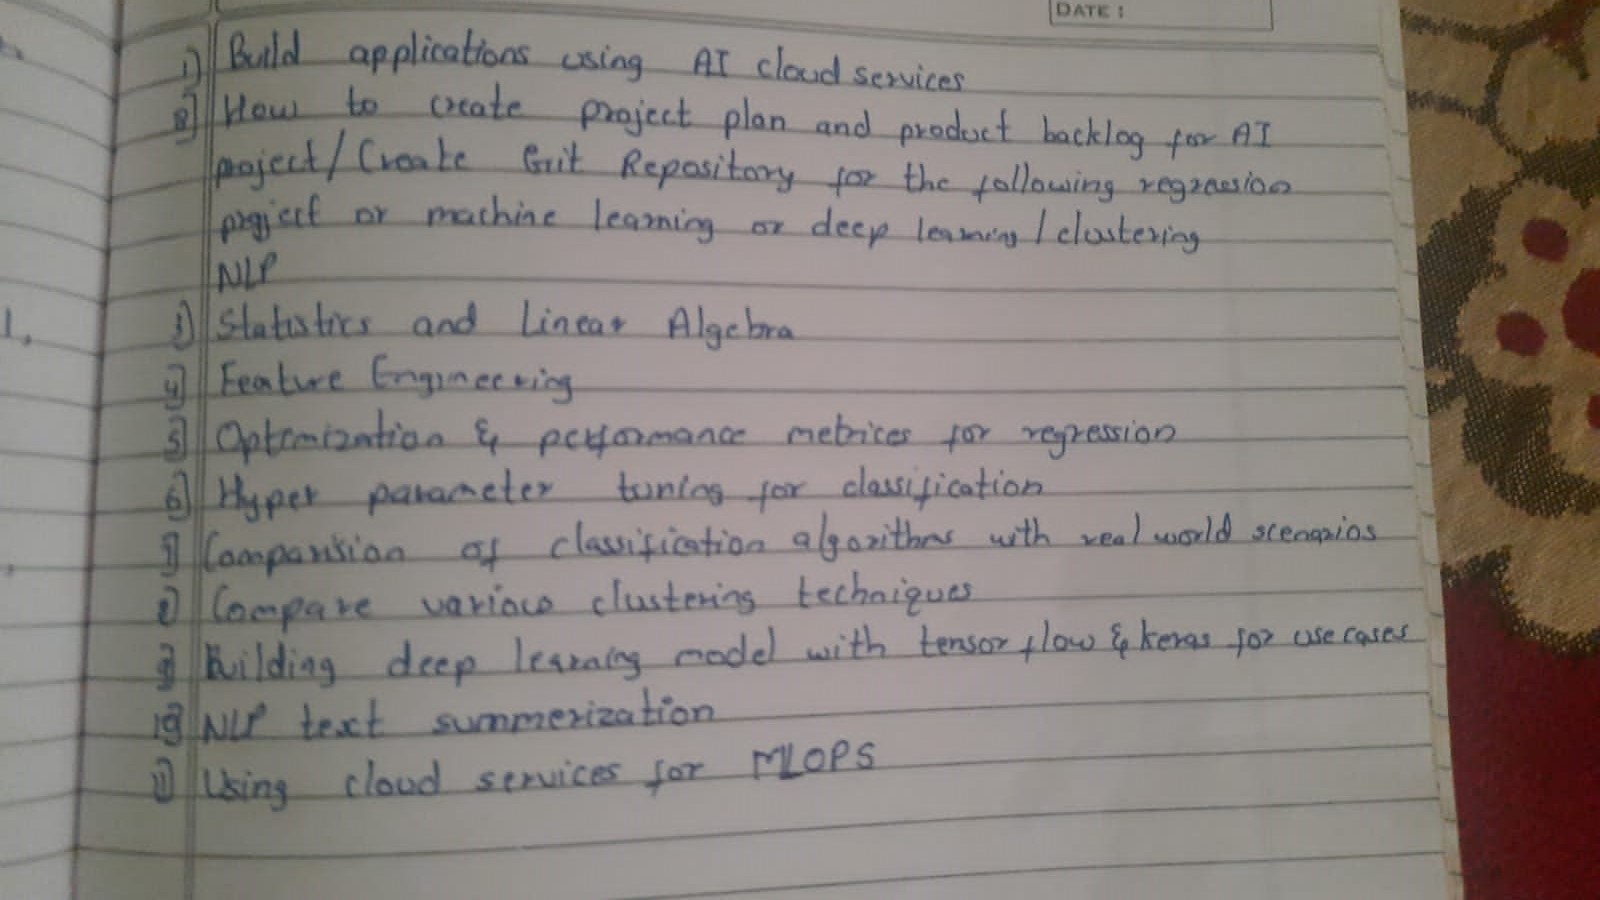 DATE :
1) Build applications using AI cloud services
2) How to create project plan and product backlog for AI
project / Create Git Repository for the following regression
project or machine learning or deep learning / clustering
NLP
3) Statistics and Linear Algebra
4) Feature Engineering
5) Optimization & performance metrices for regression
6) Hyper parameter tuning for classification
7) Comparision of classification algorithms with real world scenarios
8) Compare various clustering techniques
9) Building deep learning model with tensor flow & keras for use cases
10) NLP text summerization
11) Using cloud services for MLOPS
1.